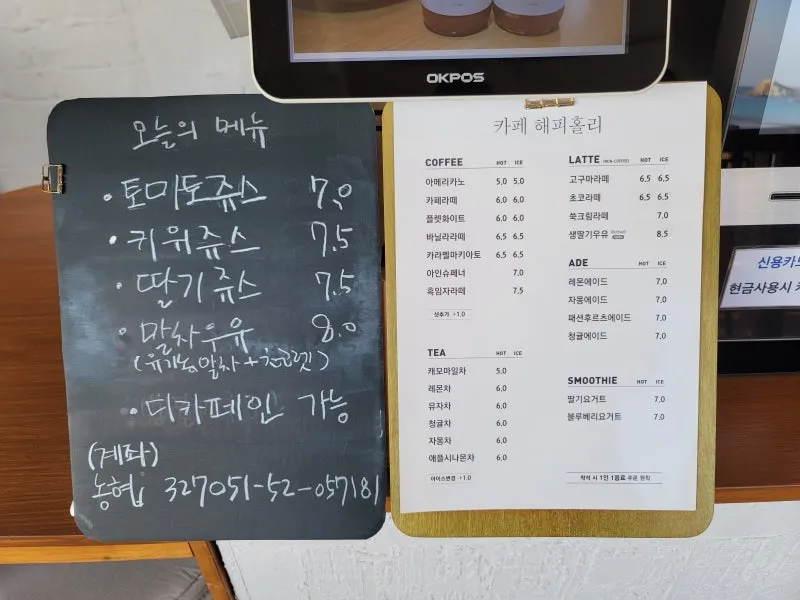 OKPOS
오늘의 메뉴
· 토마토쥬스 7.0
· 키위쥬스 7.5
· 딸기쥬스 7.5
· 말차우유 8.0
(유기농말차+초코렛)
· 디카페인 가능
(계좌)
농협 327051-52-057181
카페 해피홀리
COFFEE HOT ICE
아메리카노 5.0 5.0
카페라떼 6.0 6.0
플렛화이트 6.0 6.0
바닐라라떼 6.5 6.5
카라멜마키아토 6.5 6.5
아인슈페너 7.0
흑임자라떼 7.5
샷추가 +1.0
TEA HOT ICE
캐모마일차 5.0
레몬차 6.0
유자차 6.0
청귤차 6.0
자몽차 6.0
애플시나몬차 6.0
아이스변경 +1.0
LATTE (NON-COFFEE) HOT ICE
고구마라떼 6.5 6.5
초코라떼 6.5 6.5
쑥크림라떼 7.0
생딸기우유 8.5
ADE HOT ICE
레몬에이드 7.0
자몽에이드 7.0
패션후르츠에이드 7.0
청귤에이드 7.0
SMOOTHIE HOT ICE
딸기요거트 7.0
블루베리요거트 7.0
착석 시 1인 1음료 주문 원칙
신용카드
현금사용시